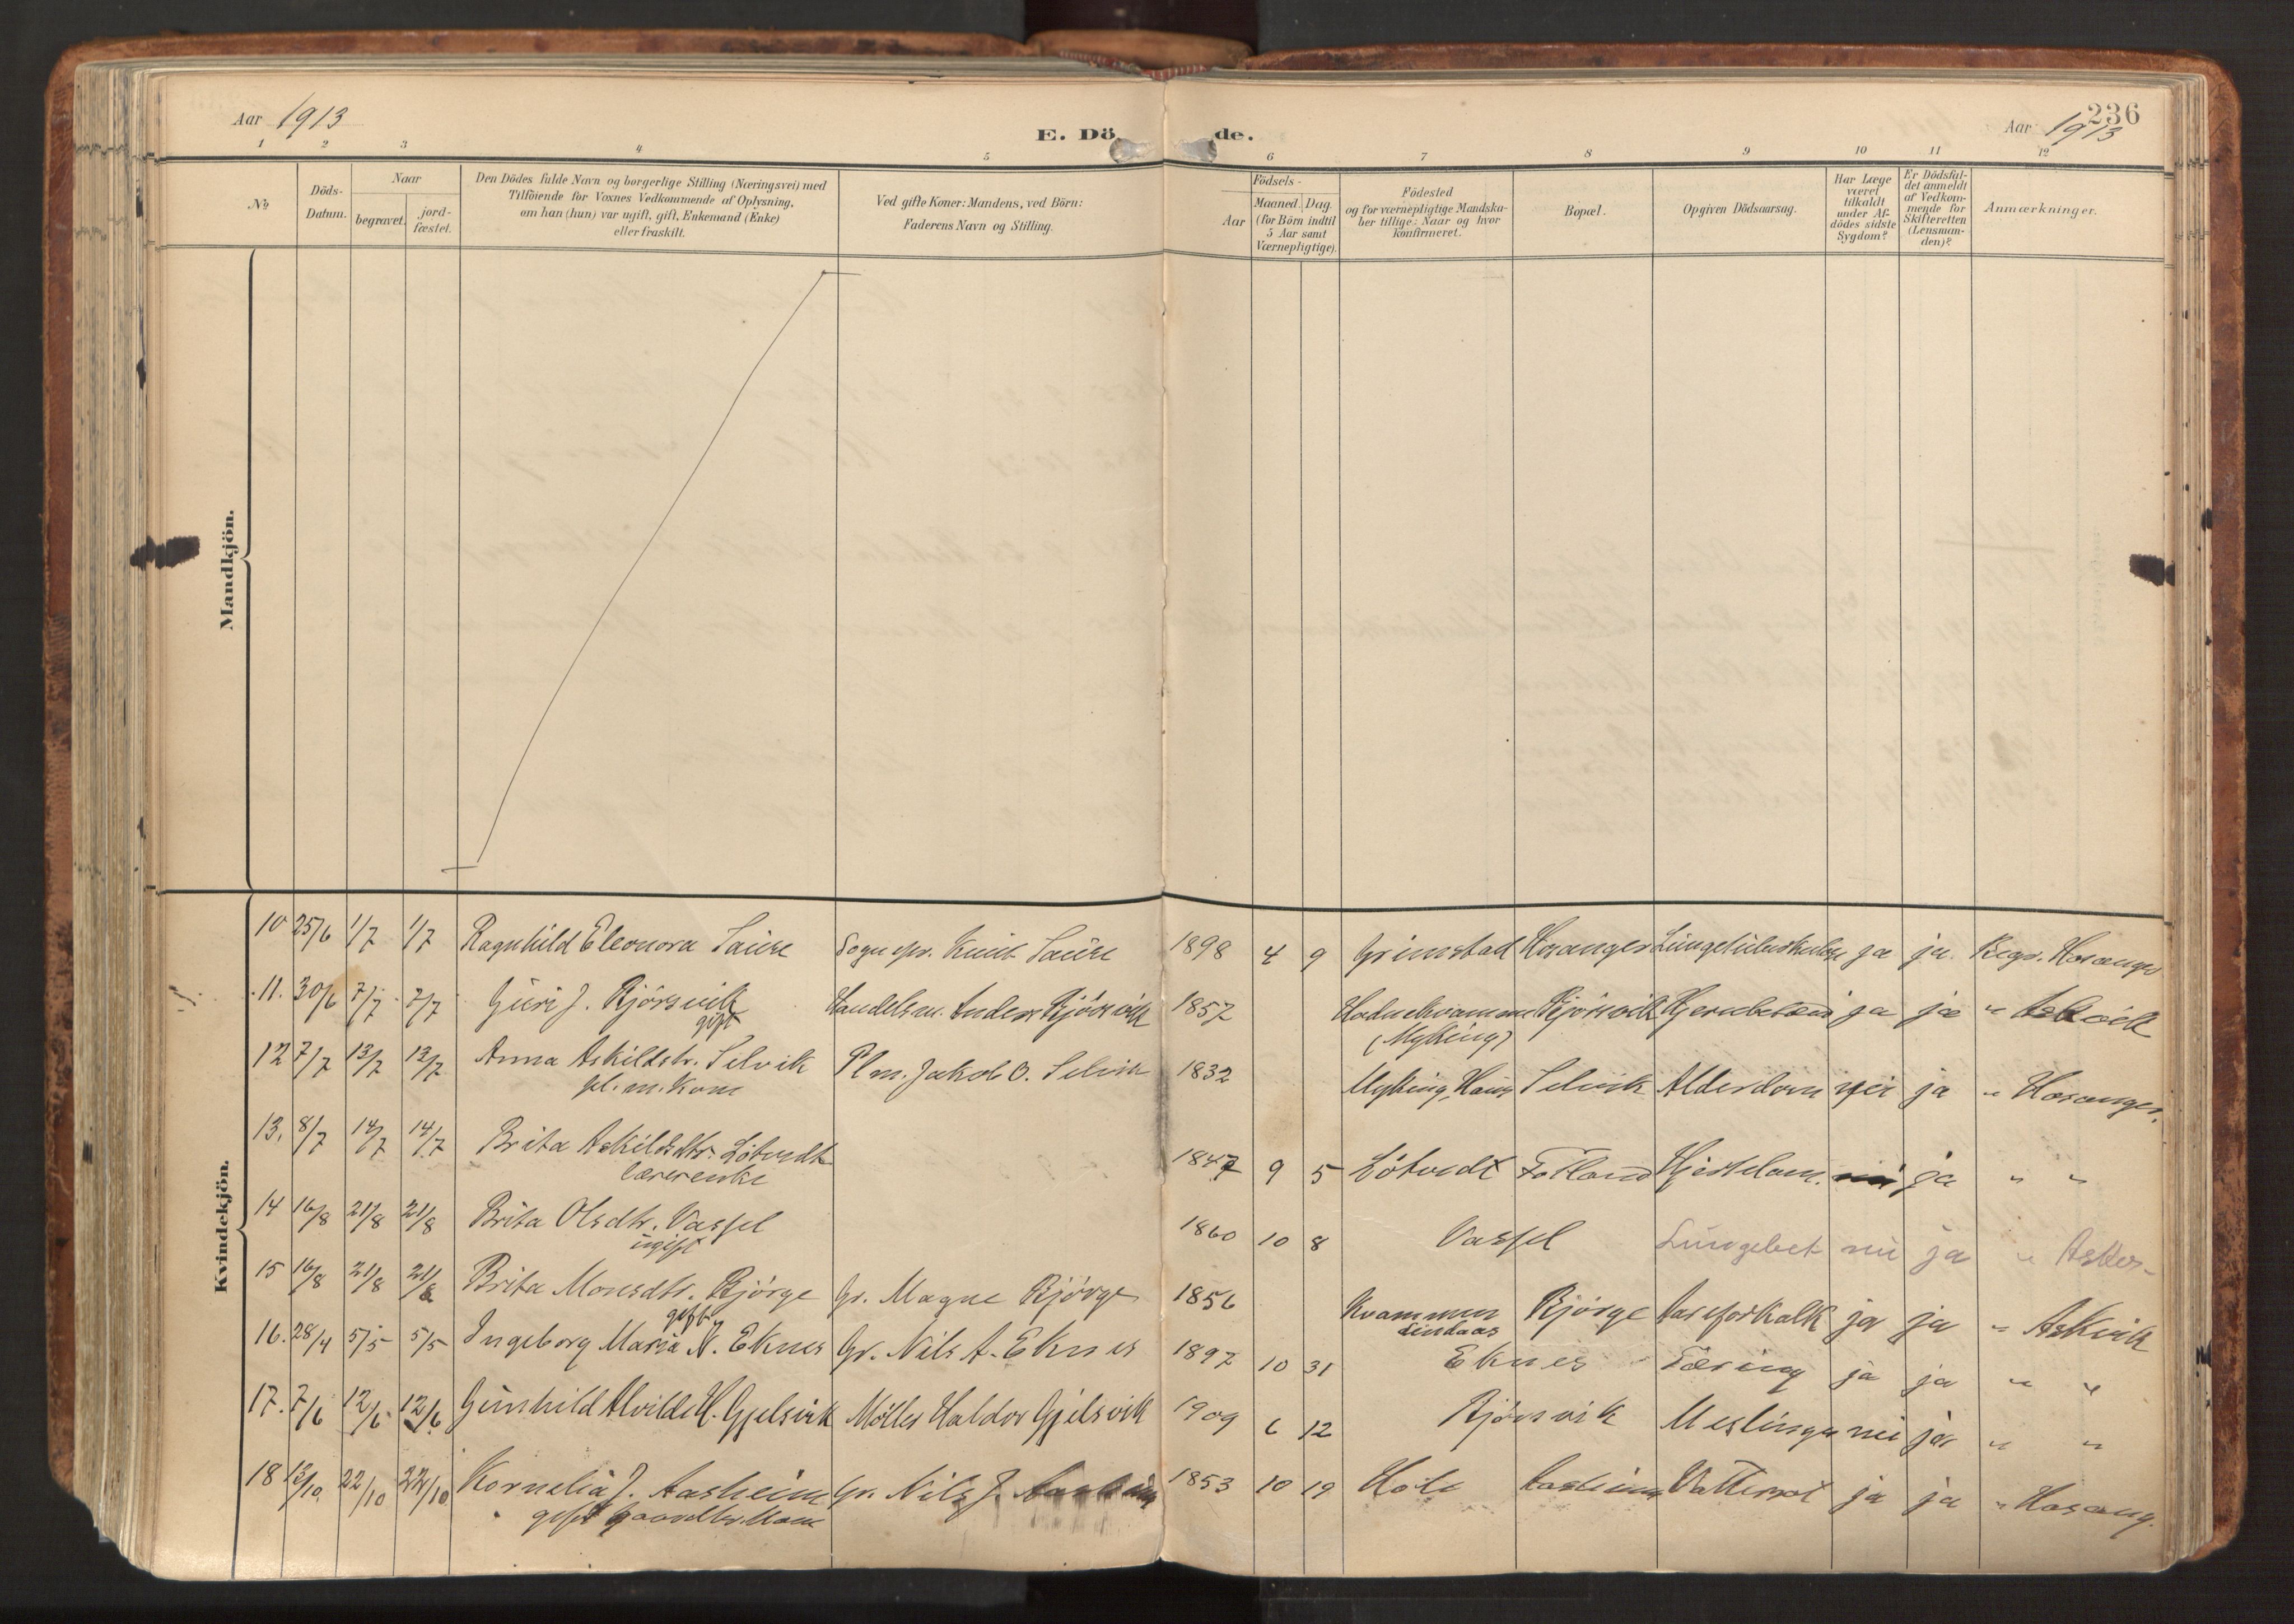 Aar 1913
E. Dö
de.
236
Aar 1913
1 2 3 4 5 6 7 8 9 10 11 12
No
Döds-
Datum.
Naar
begravet.
jord-
fæstet.
Den Dödes fulde Navn og borgerlige Stilling (Næringsvei) med
Tilföiende for Voxnes Vedkommende af Oplysning,
om han (hun) var ugift, gift, Enkemand (Enke)
eller fraskilt.
Ved gifte Koner: Mandens, ved Börn:
Faderens Navn og Stilling.
Födsels-
Aar
Maaned. Dag.
(for Börn indtil
5 Aar samt
Værnepligtige).
Födested
og for værnepligtige Mandska-
ber tillige: Naar og hvor
konfirmeret.
Bopæl.
Opgiven Dödsaarsag.
Har Læge
været
tilkaldt
under Af-
dödes sidste
Sygdom?
Er Dödsfal-
det anmeldt
af Vedkom-
mende for
Skifteretten
(Lensman-
den)?
Anmærkninger.
Mandkjön.
Kvindekjön.
10 25/6 1/7 1/7 Ragnhild Eleonora Saure Sognepr. Knut Saure 1898 4 9 Grimstad Hosanger ja ja Begr. Hosanger
11. 30/6 7/7 7/7 Guri J. Bjørsvik Handelsm. Anders Bjørsvik 1857 Bjørsvik ja ja " Askvik
gift
(Myking)
12 7/7 13/7 13/7 Anna Askildsdtr. Selvik Plm. Jakob O. Selvik 1832 Myking, Selvik Alderdom nei ja " Hosanger.
pl. m. Kone
13. 8/7 14/7 14/7 Brita Askildsdtr. Løtvedt 1847 9 5 Løtvedt Fotland ja " "
14 16/8 21/8 21/8 Brita Olsdtr. Vassel 1860 10 8 Vassel nei ja "
ugift
15 16/8 21/8 21/8 Brita Monsdtr. Bjørge Gr. Magne Bjørge 1856 Kvammen Bjørge Aareforkalk ja ja " Askvik
gift
Lindaas
16. 28/4 5/5 5/5 Ingeborg Maria N. Eknes Gr. Nils A. Eknes 1897 10 31 Eknes Tæring ja ja " "
17. 7/6 12/6 12/6 Gunhild Alvilde H. Gjelsvik Møller Haldor Gjelsvik 1909 6 12 Bjørsvik Meslinger nei ja " "
18 13/10 22/10 22/10 Kornelia J. Aasheim Gr. Nils J. Aasheim 1853 10 19 Aasheim Vattersot ja ja " Hosang.
gift